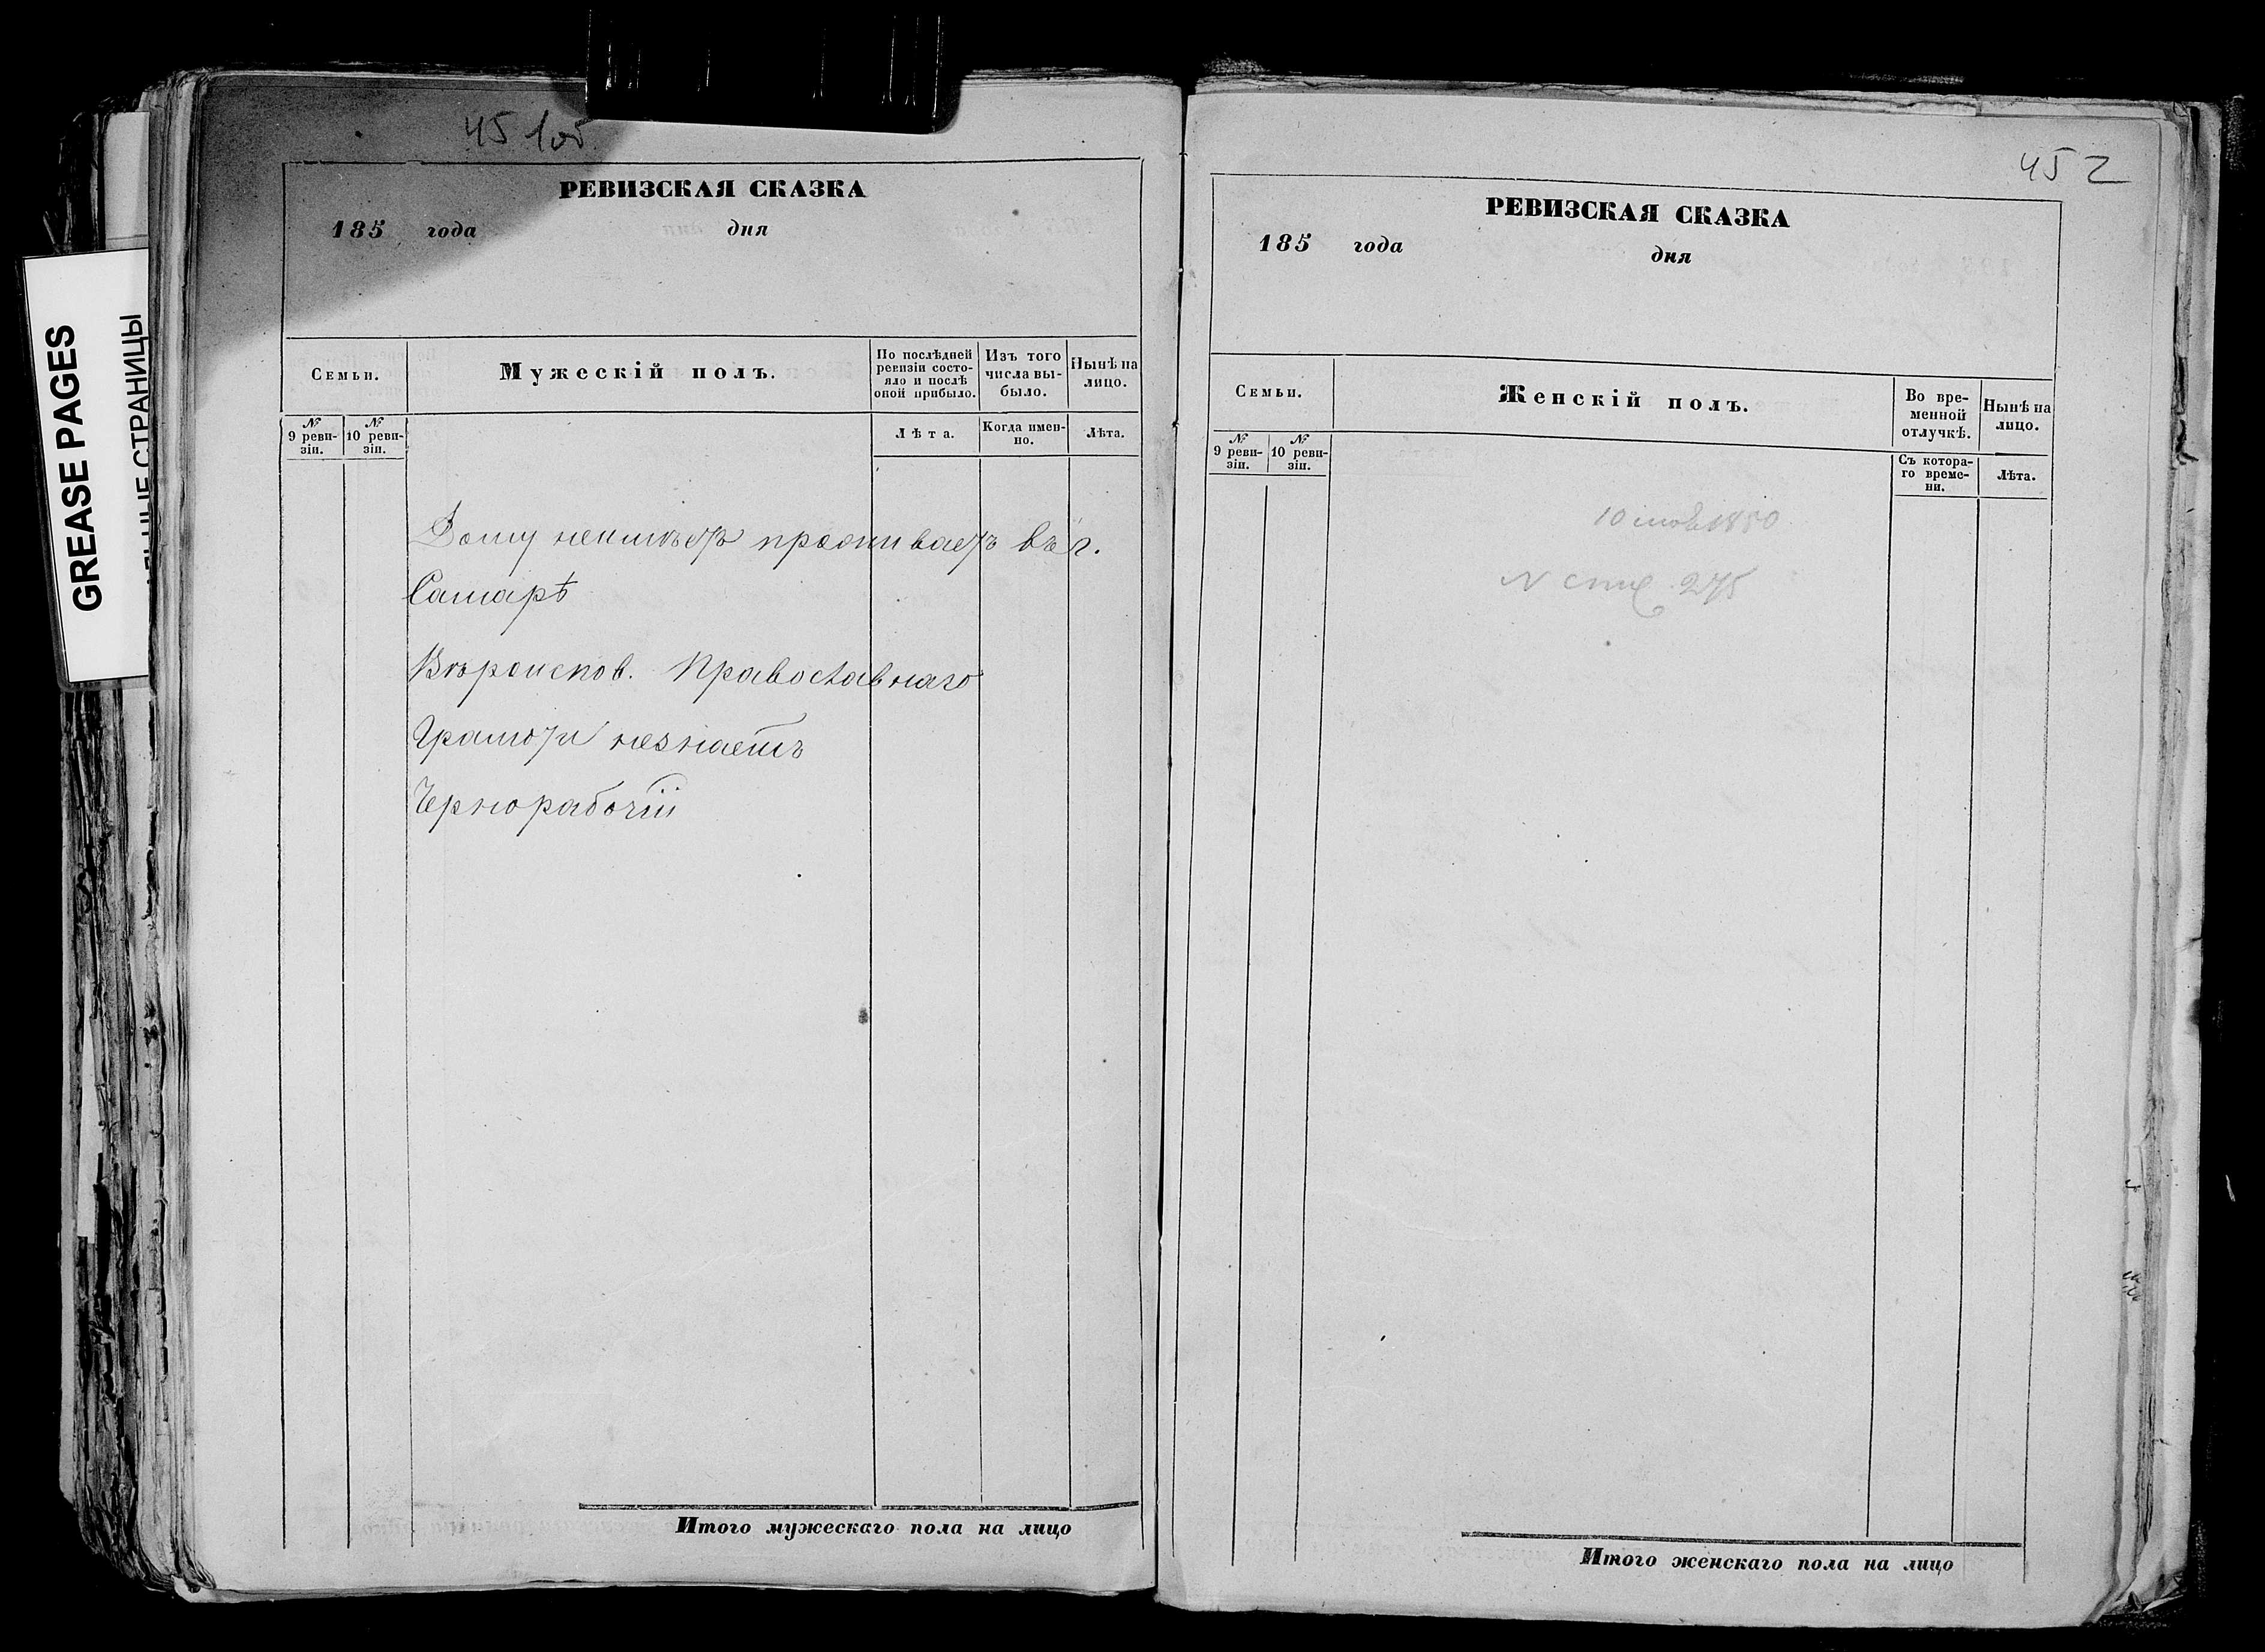 GREASE PAGES
СТРАНИЦЫ
451об.
РЕВИЗСКАЯ СКАЗКА
185 года дня
Семьи.
Мужескій полъ.
По послѣдней
ревизіи состо-
яло и послѣ
оной прибыло.
Изъ того
числа вы-
было.
Нынѣ на
лицо.
№
9 реви-
зіи.
№
10 реви-
зіи.
Лѣта.
Когда имен-
но.
Лѣта.
Дому неимѣетъ проживаетъ въ г.
Самарѣ
Вѣроиспов. Православнаго
Грамоти незнаетъ
Чернорабочій
Итого мужескаго пола на лицо
452
РЕВИЗСКАЯ СКАЗКА
185 года дня
Семьи.
Женскій полъ.
Во вре-
менной
отлучкѣ.
Нынѣ на
лицо.
№
9 реви-
зіи.
№
10 реви-
зіи.
Съ котора-
го време-
ни.
Лѣта.
10 1850
№ 275
Итого женскаго пола на лицо